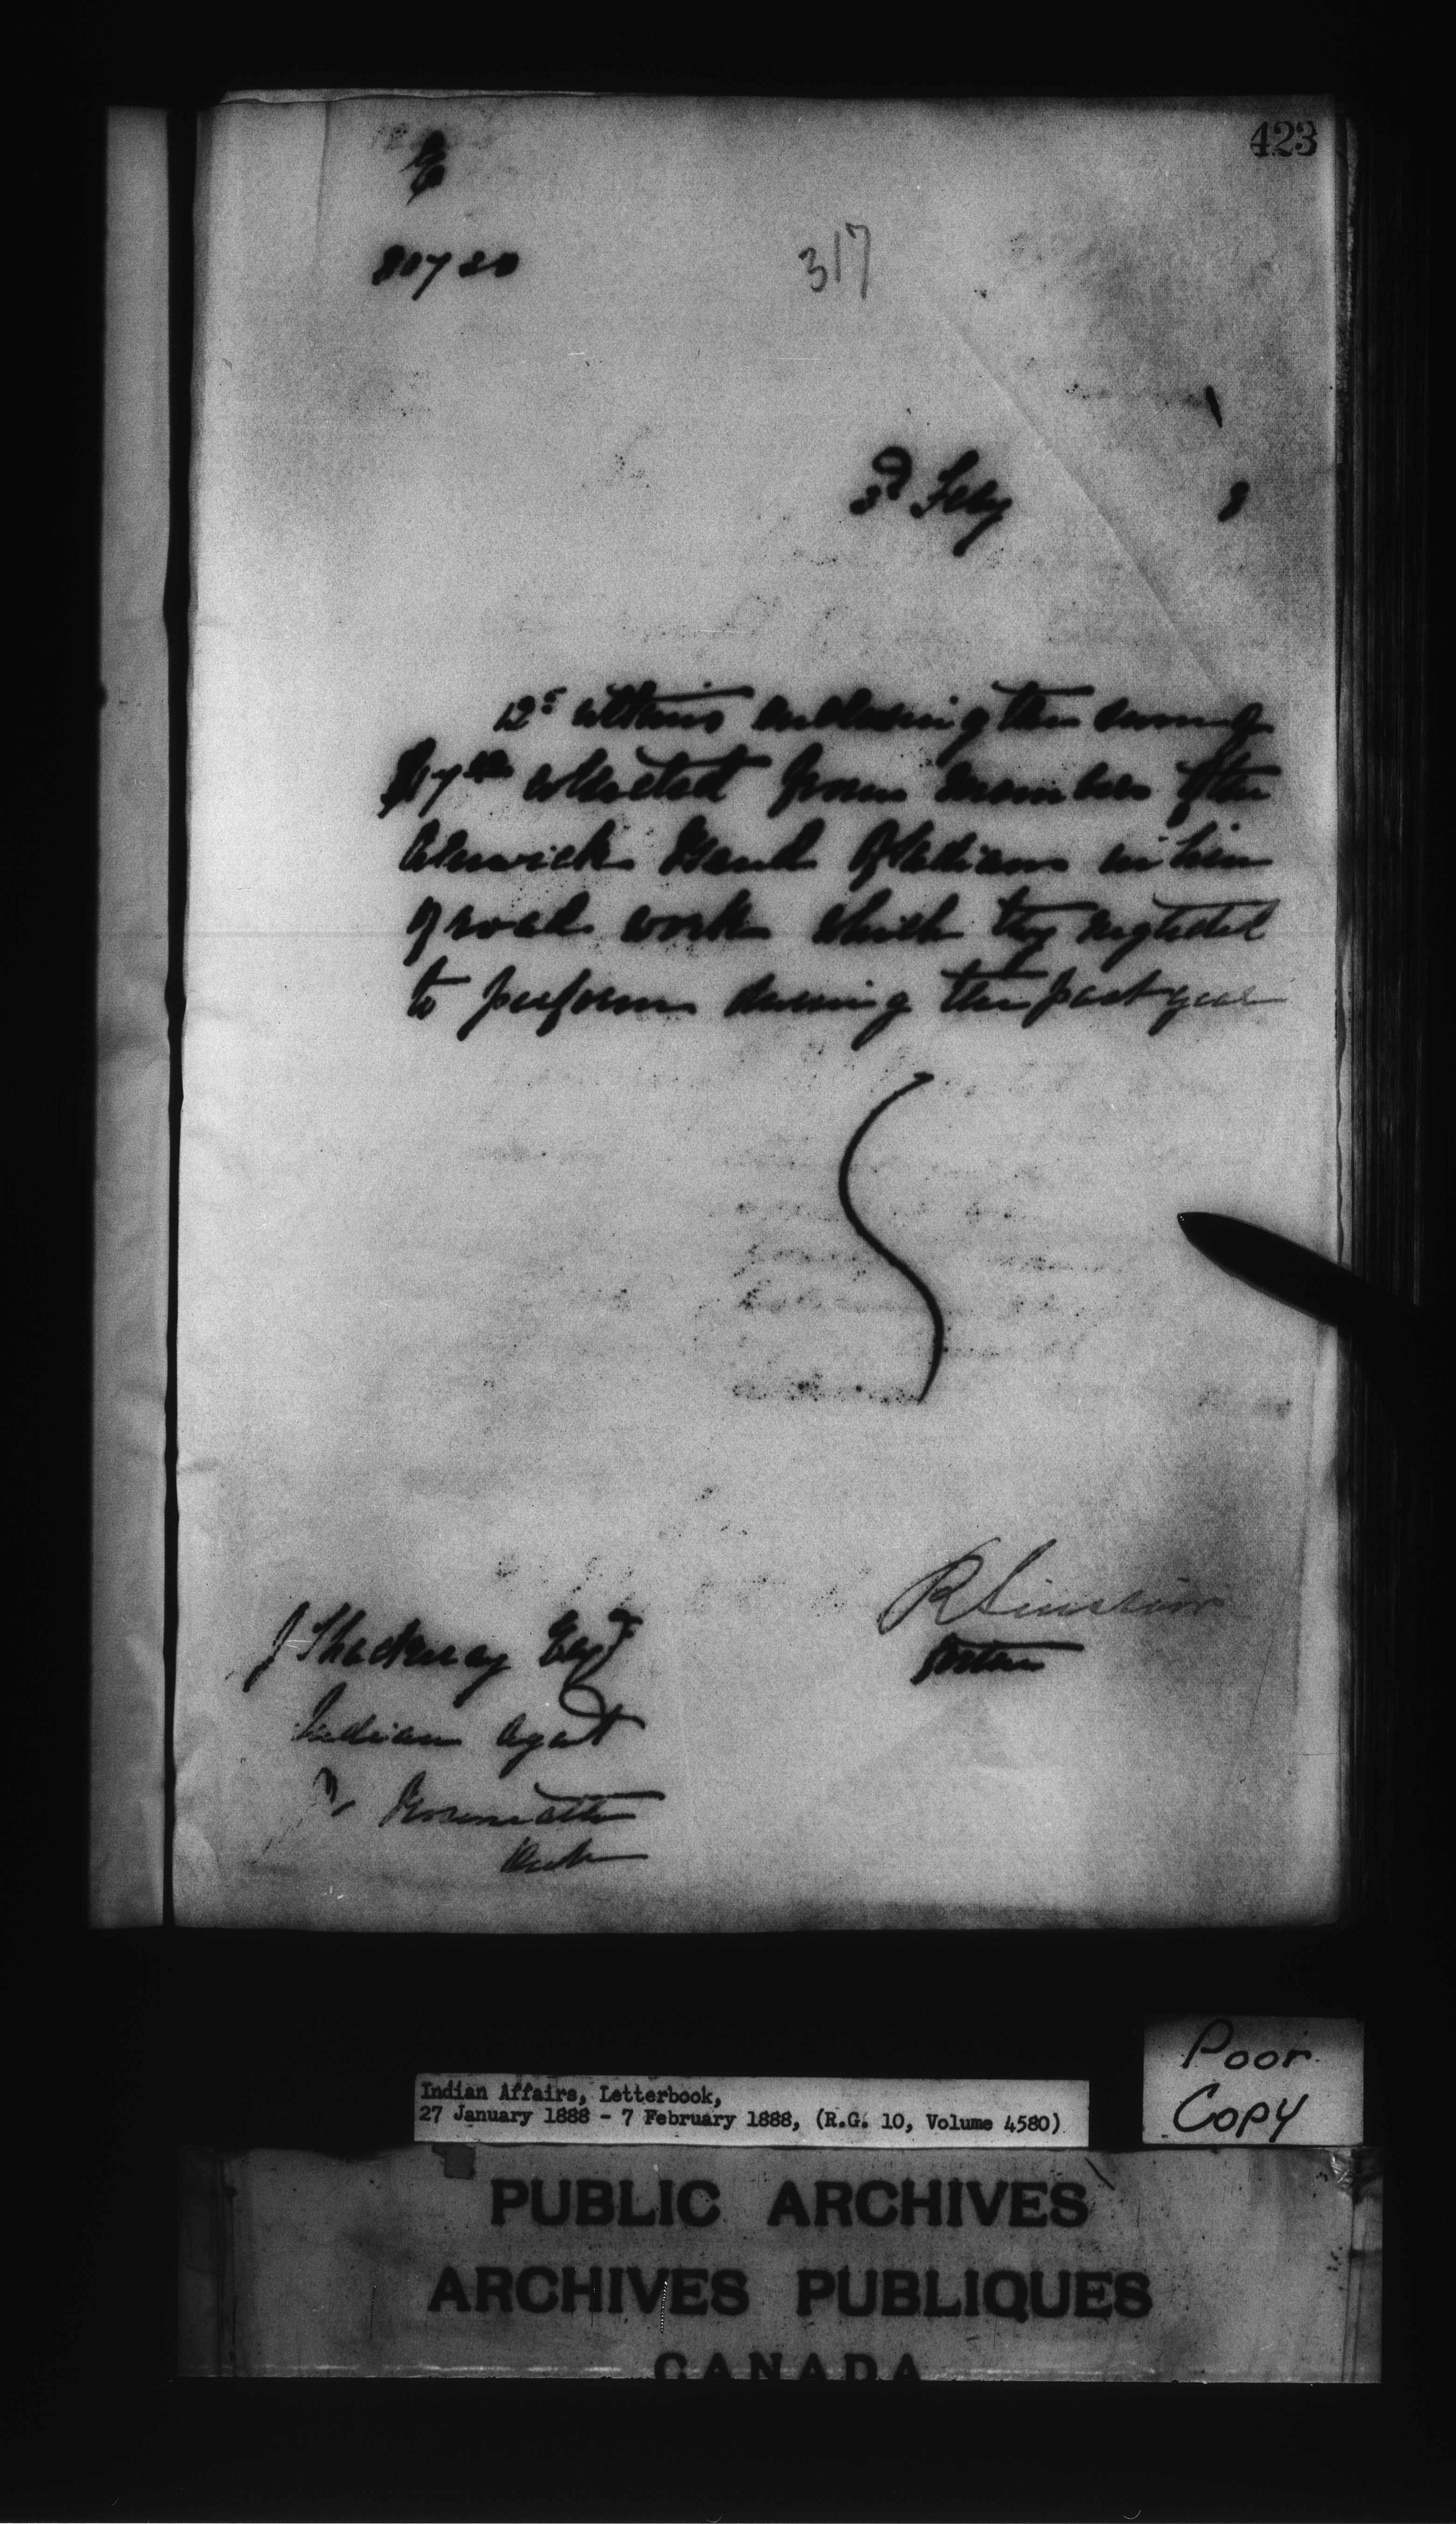 423
E
80720
317
3d Feby 8
12th ultimo enclosing the sum of
$17 collected from members of the
Alnwick Band of Indians in lieu
of road work which they neglected
to perform during the past year
R Sinclair
J Thackeray Esqr
Indian Agent
Roseneath
Ont
Poor
Copy
Indian Affairs, Letterbook,
27 January 1888 - 7 February 1888, (R.G. 10, Volume 4580)
PUBLIC ARCHIVES
ARCHIVES PUBLIQUES
CANADA